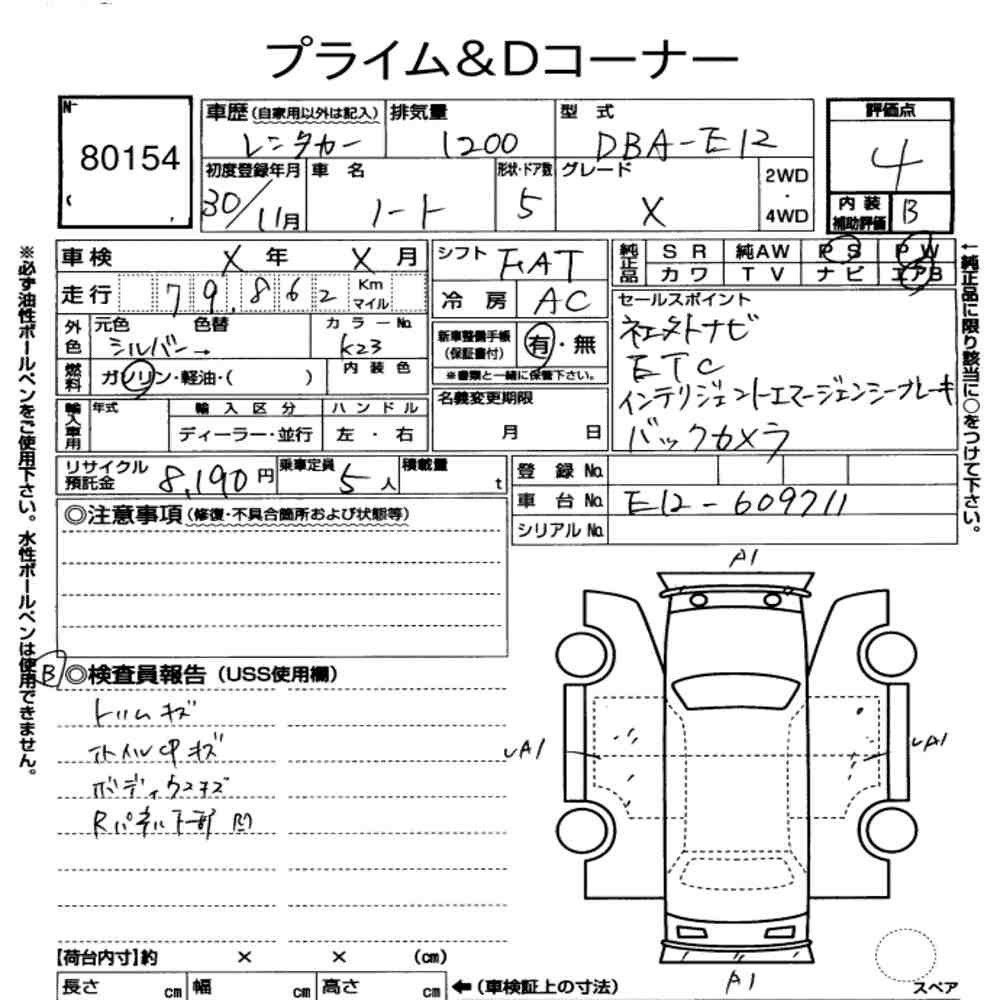 プライム&Dコーナー
№ 80154
車歴(自家用以外は記入) 排気量 型式 評価点
レンタカー 1200 DBA-E12 4
初度登録年月 車名 形状・ドア数 グレード 2WD・4WD 内装補助評価 B
30/11月 ノート 5 X
車検 X 年 X 月 シフト FAT 純正品 SR 純AW PS PW
カワ TV ナビ エアB
走行 79,862 Km マイル 冷房 AC セールスポイント
外色 元色 色替 カラーNo. 新車整備手帳(保証書付) 有・無
シルバー→ K23 ※書類と一緒に保管下さい。
燃料 ガソリン・軽油・( ) 内装色 名義変更期限
月 日
純正ナビ
ETC
インテリジェントエマージェンシーブレーキ
バックカメラ
輸入車用 年式 輸入区分 ハンドル
ディーラー・並行 左・右
リサイクル預託金 8,190円 乗車定員 5人 積載量 t 登録No.
車台No. E12-609711
シリアルNo.
◎注意事項(修復・不具合箇所および状態等)
B ◎検査員報告(USS使用欄)
トリムキズ
ホイルCPキズ
ボディウスキズ
Rパネル下部凹
A1
A1
A1
A1
【荷台内寸】約 × × (cm)
長さ cm 幅 cm 高さ cm ←(車検証上の寸法) スペア
※必ず油性ボールペンをご使用下さい。水性ボールペンは使用できません。
←純正品に限り該当に○をつけて下さい。